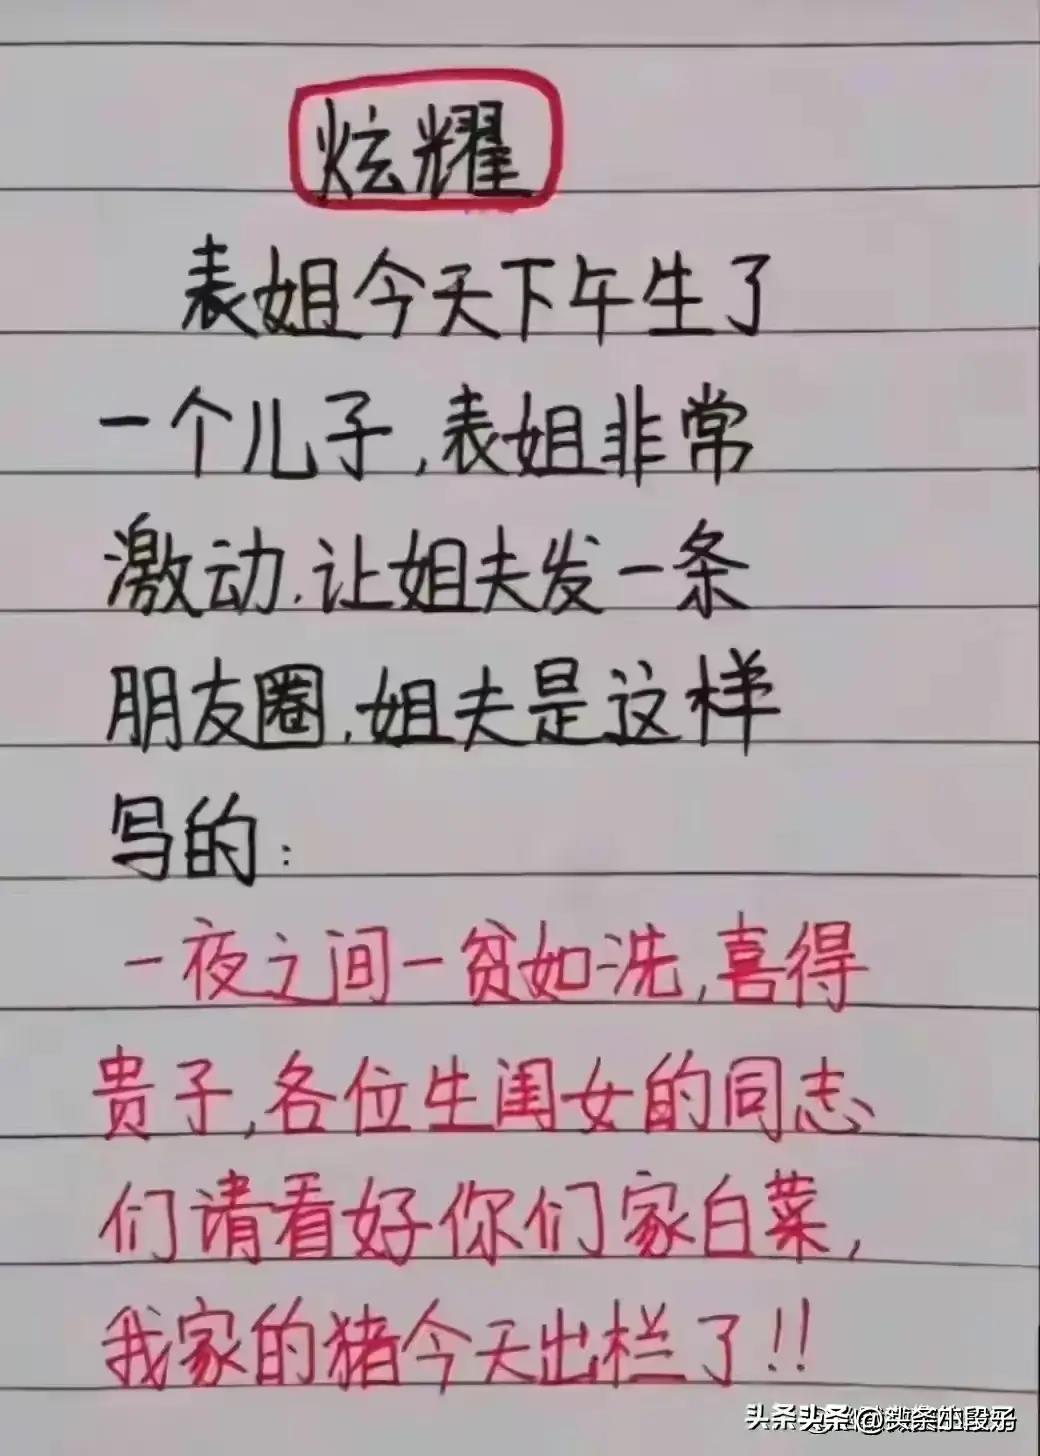 炫耀
表姐今天下午生了
一个儿子,表姐非常
激动.让姐夫发一条
朋友圈.姐夫是这样
写的:
一夜之间一贫如洗,喜得
贵子,各位生闺女的同志
们请看好你们家白菜,
我家的猪今天出栏了!!
头条 @头条